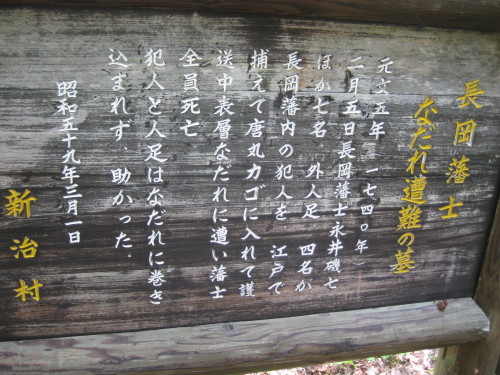 長岡藩士
なだれ遭難の墓
元文五年(一七四〇年)
二月五日長岡藩士永井磯七
ほか七名、外人足、四名が
長岡藩内の犯人を、江戸で
捕えて唐丸カゴに入れて護
送中表層なだれに遭い藩士
全員死亡
犯人と人足はなだれに巻き
込まれず、助かった。
昭和五十九年三月一日
新治村